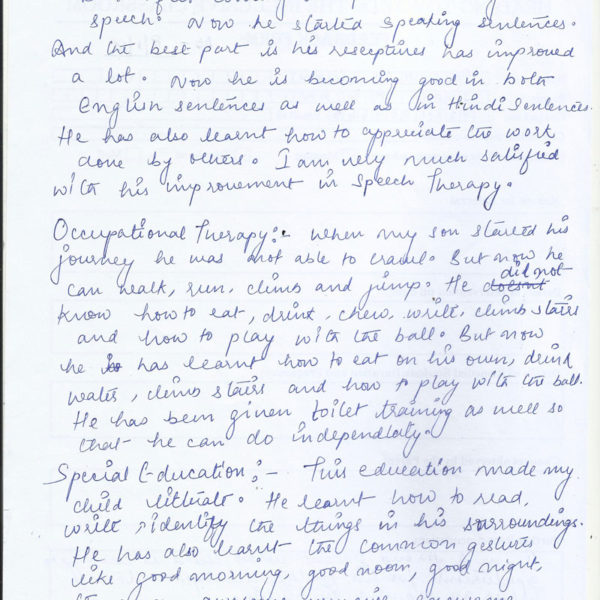 speech. Now he started speaking sentences.
And the best part is his resceptives has improved
a lot. Now he is becoming good in both
English sentences as well as in Hindi sentences.
He has also learnt how to appreciate the work
done by others. I am very much satisfied
with his improvement in Speech Therapy.
Occupational Therapy:- When my son started his
journey he was not able to crawl. But now he
can walk, run, climb and jump. He doesnt did not
know how to eat, drink, chew, write, climb stairs
and how to play with the ball. But now
he is has learnt how to eat on his own, drink
water, climb stairs and how to play with the ball.
He has been given toilet training as well so
that he can do independlaty.
Special Education:- This education made my
child litrate. He learnt how to read,
write, identify the things in his surroundings.
He has also learnt the common gesturs
like good morning, good noon, good night,